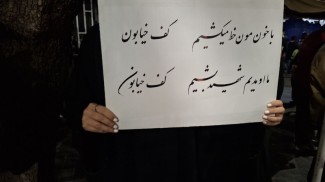 با خون مون خط میکشیم کف خیابون
ما اومدیم شهید بشیم کف خیابون